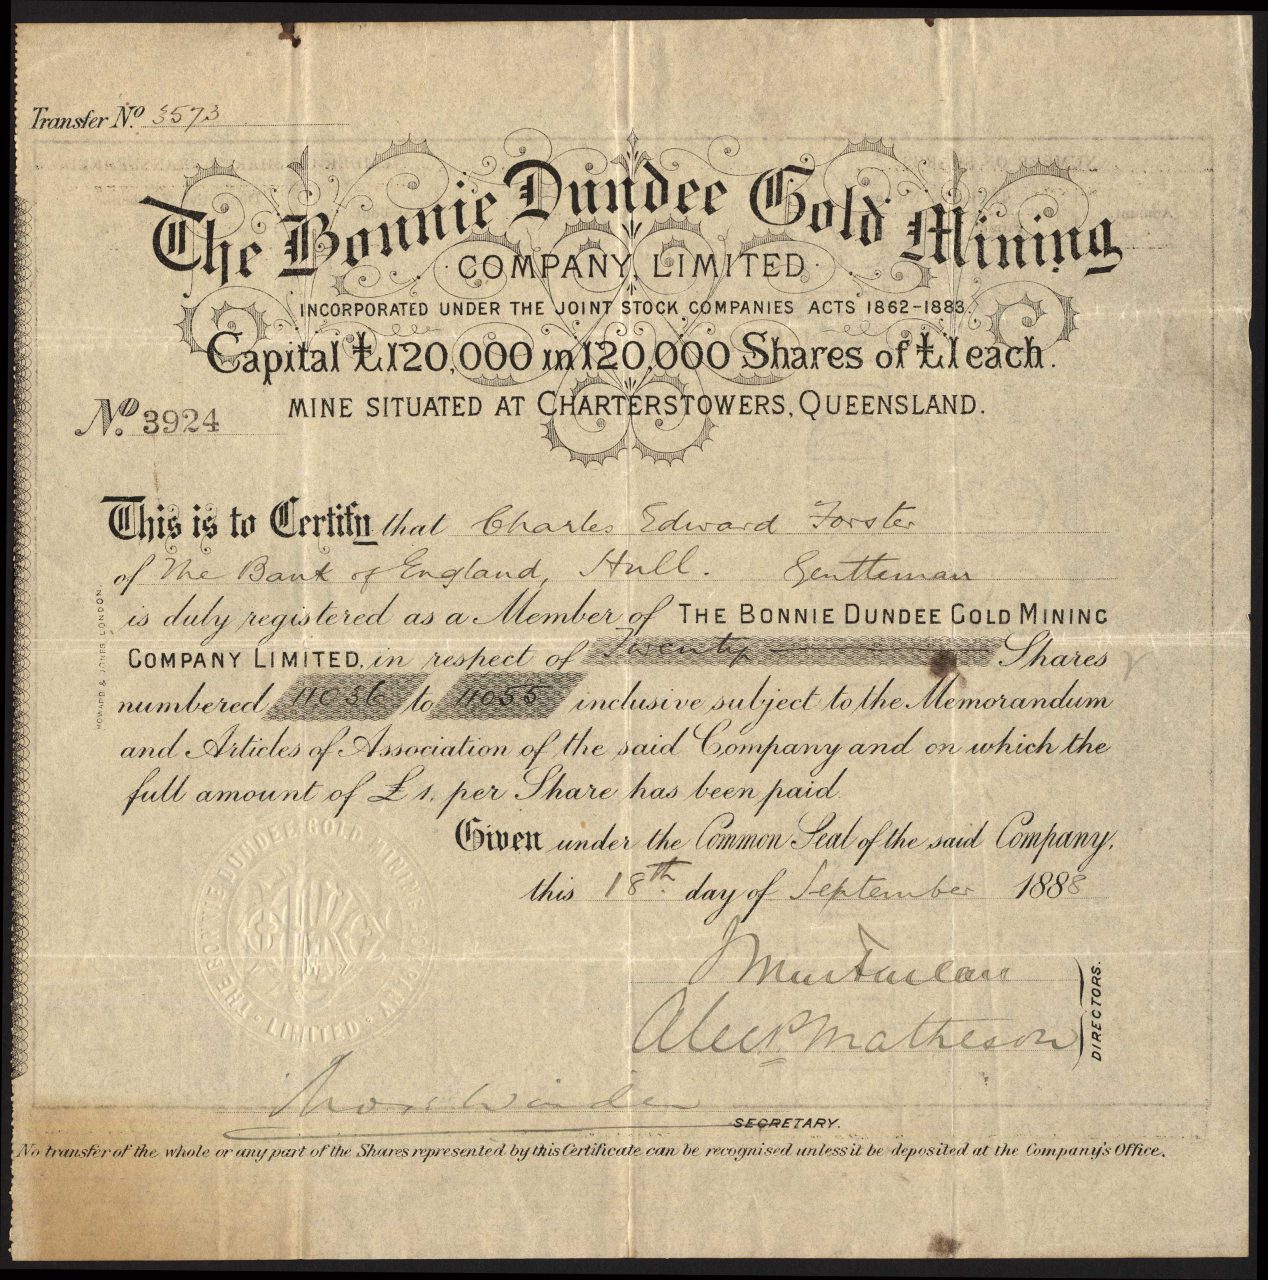 Transfer No. 3573
The Bonnie Dundee Gold Mining
COMPANY, LIMITED.
INCORPORATED UNDER THE JOINT STOCK COMPANIES ACTS 1862-1883.
Capital £120,000 in 120,000 Shares of £1 each.
No. 3924
MINE SITUATED AT CHARTERSTOWERS, QUEENSLAND.
This is to Certify that Charles Edward Forster
of The Bank of England, Hull. Gentleman
is duly registered as a Member of THE BONNIE DUNDEE GOLD MINING
COMPANY LIMITED, in respect of Twenty Shares
numbered 11036 to 11055 inclusive subject to the Memorandum
and Articles of Association of the said Company and on which the
full amount of £1. per Share has been paid.
Given under the Common Seal of the said Company,
this 18th day of September 1888
THE BONNIE DUNDEE GOLD MINING COMPANY LIMITED
Matheson
DIRECTORS.
SECRETARY.
No transfer of the whole or any part of the Shares represented by this Certificate can be recognised unless it be deposited at the Company's Office.
HOWARD & JONES, LONDON